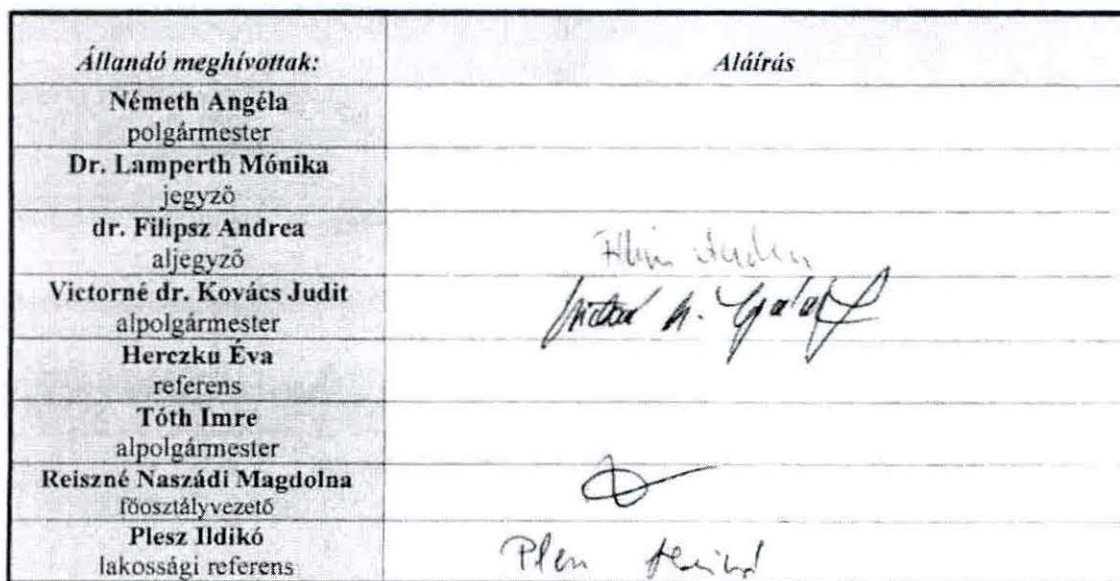 Állandó meghívottak: Aláírás
Németh Angéla
polgármester
Dr. Lamperth Mónika
jegyző
dr. Filipsz Andrea
aljegyző
Victorné dr. Kovács Judit
alpolgármester
Herczku Éva
referens
Tóth Imre
alpolgármester
Reiszné Naszádi Magdolna
főosztályvezető
Plesz Ildikó
lakossági referens